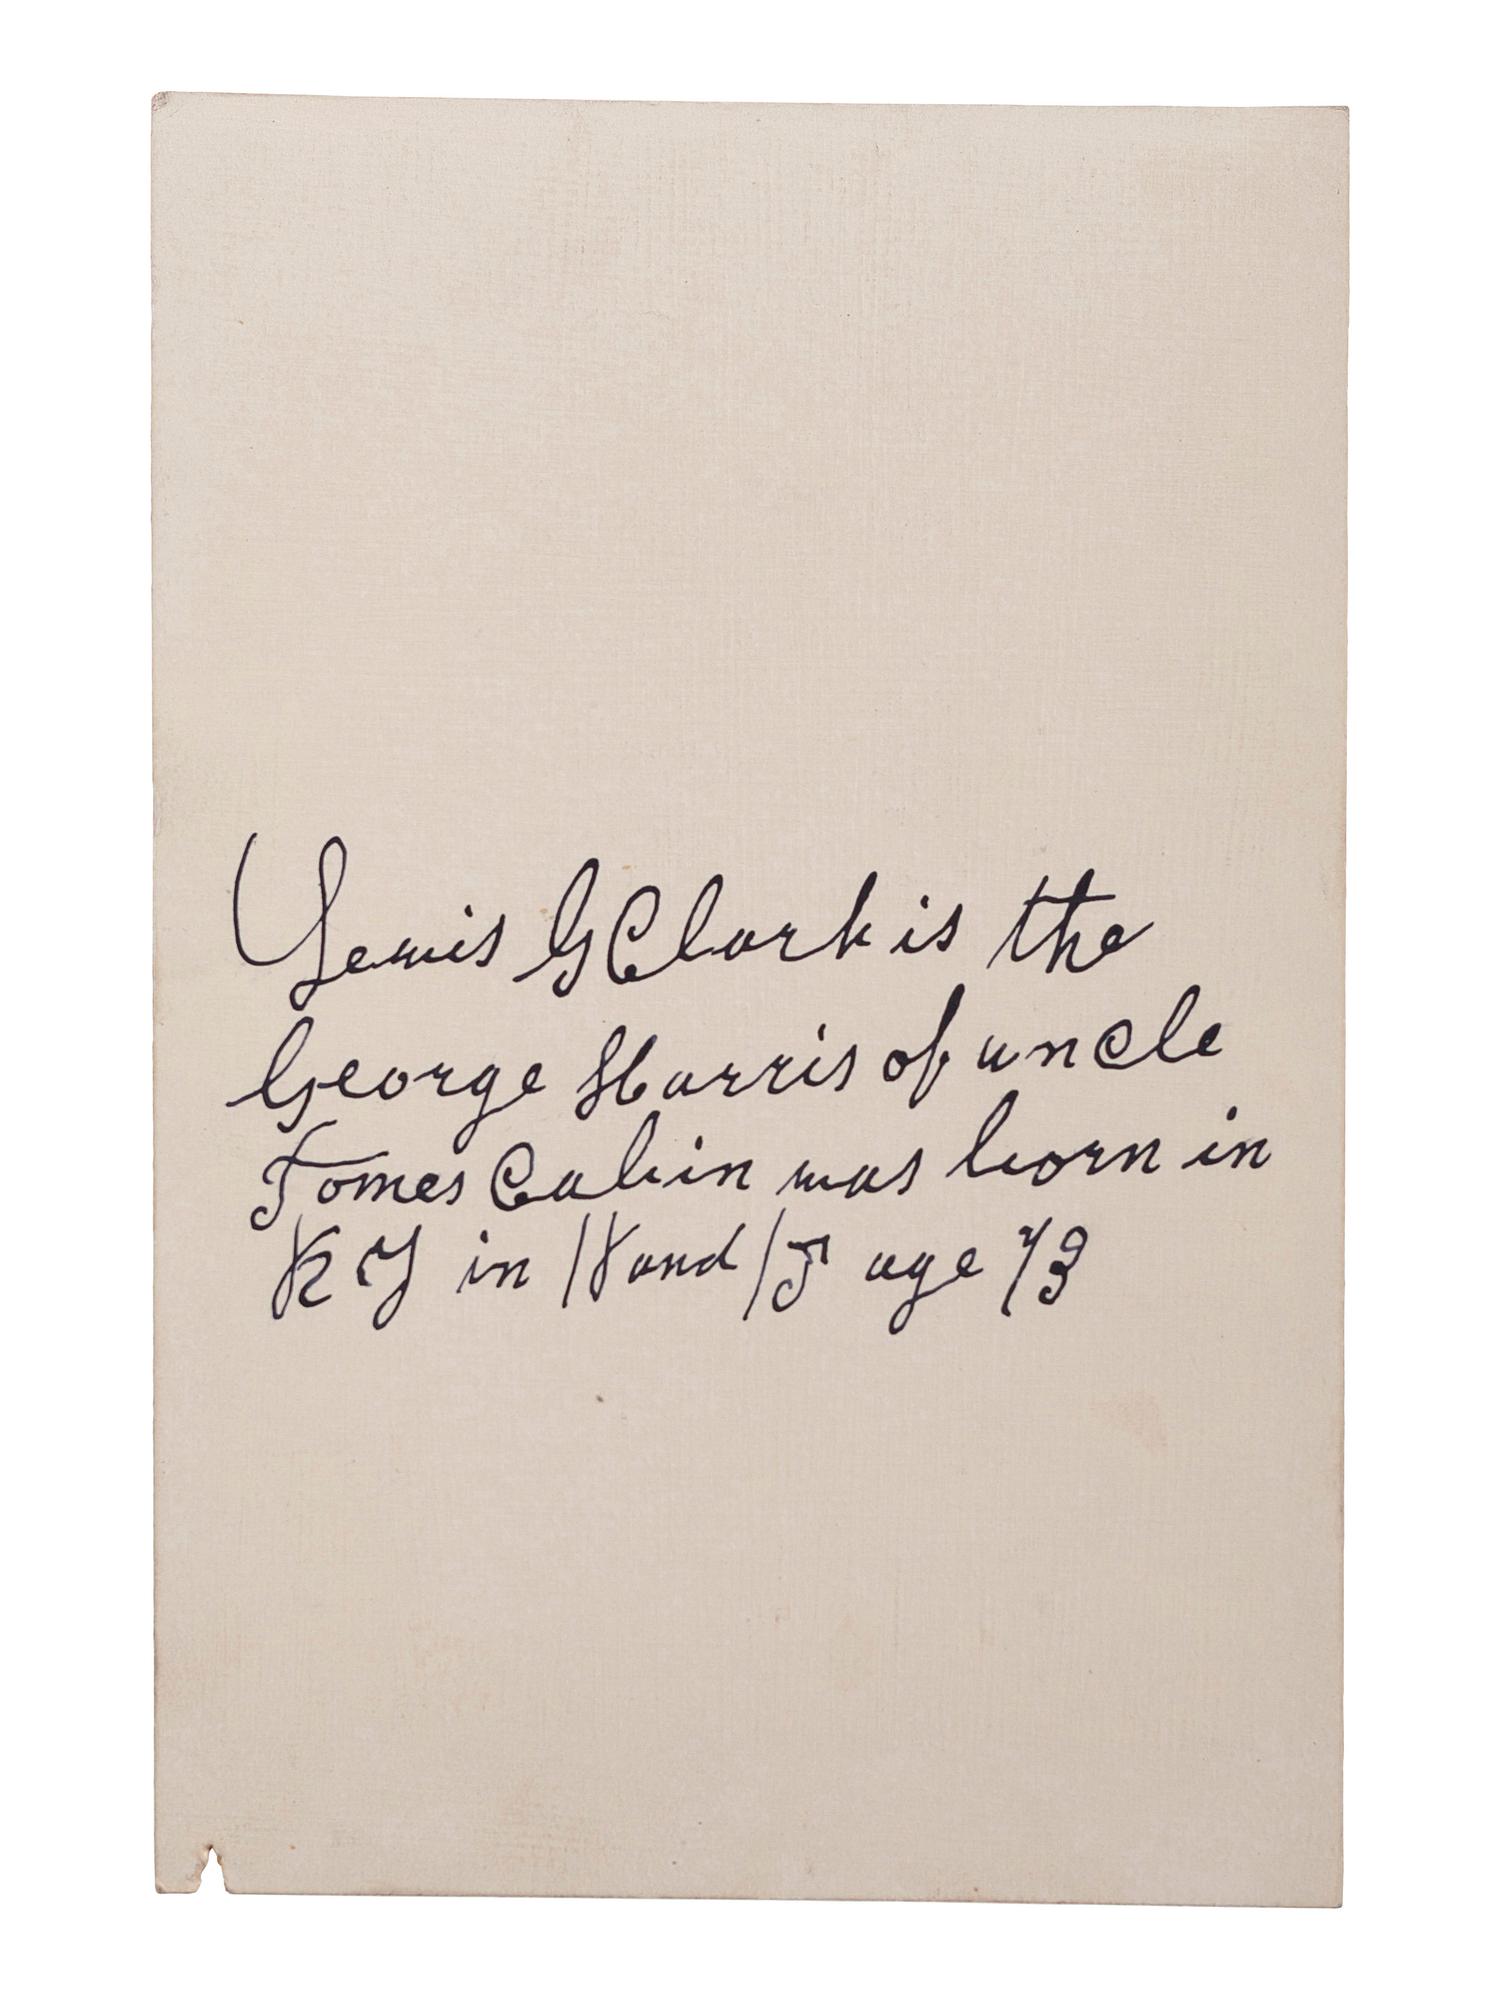 Lewis G Clark is the
George Harris of uncle
Tomes Cabin was born in
KY in 18 and 15 age 73